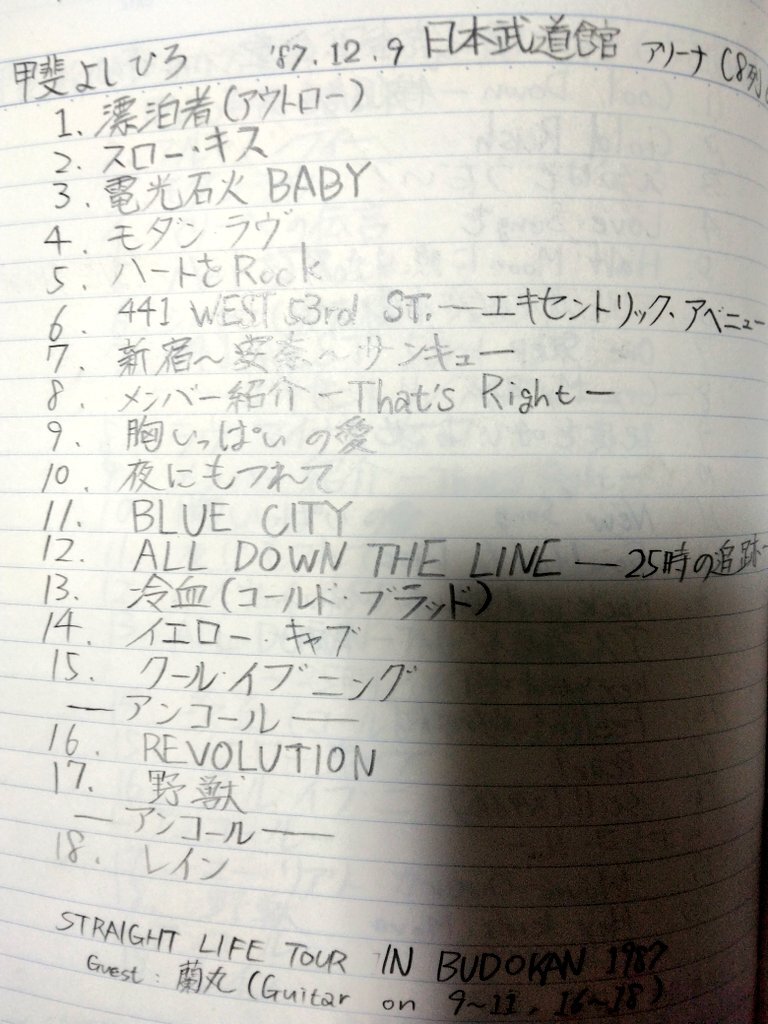 甲斐よしひろ '87.12.9 日本武道館 アリーナ(8列
1. 漂泊者(アウトロー)
2. スロー・キス
3. 電光石火 BABY
4. モダン・ラヴ
5. ハートをRock
6. 441 WEST 53rd ST. ― エキセントリック・アベニュー
7. 新宿～安奈～サンキュー
8. メンバー紹介 ― That's Right ―
9. 胸いっぱいの愛
10. 夜にもつれて
11. BLUE CITY
12. ALL DOWN THE LINE ― 25時の追跡
13. 冷血(コールド・ブラッド)
14. イエロー・キャブ
15. クール・イブニング
― アンコール ―
16. REVOLUTION
17. 野獣
― アンコール ―
18. レイン
STRAIGHT LIFE TOUR IN BUDOKAN 1987
Guest : 蘭丸 (Guitar on 9～11, 16～18)